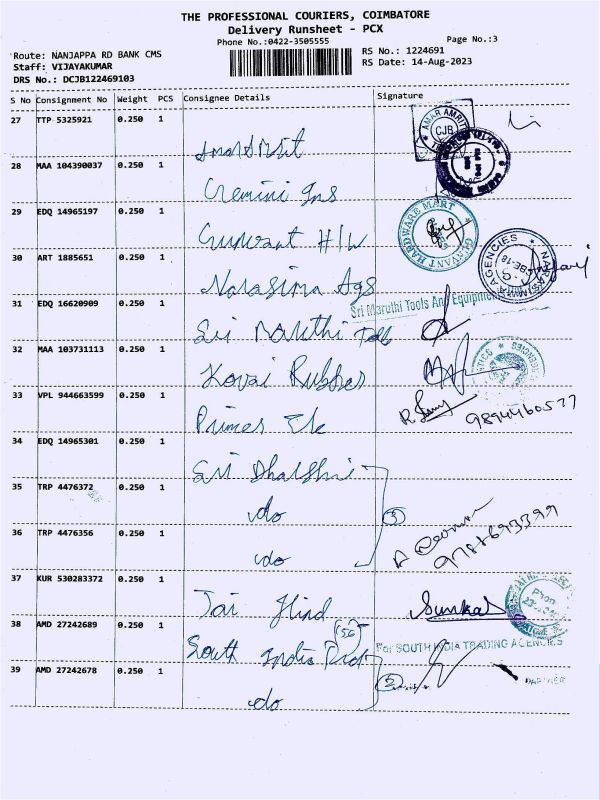 THE PROFESSIONAL COURIERS, COIMBATORE
Delivery Runsheet - PCX
Phone No.:0422-3505555
Page No.:3
Route: NANJAPPA RD BANK CMS
RS No.: 1224691
Staff: VIJAYAKUMAR
RS Date: 14-Aug-2023
DRS No.: DCJB122469103
S No Consignment No Weight PCS Consignee Details Signature
27 TTP 5325921 0.250 1
AMAR AMRIT
CJB
28 MAA 104390037 0.250 1
Gemini
29 EDQ 14965197 0.250 1
Gurvant H/W
GURVANT HARDWARE MART
30 ART 1885651 0.250 1
Narasima Ags
NARASIMMA AGENCIES
CBE-18
31 EDQ 16620909 0.250 1
Sri Maruthi Tools And Equipment
Sri Maruthi Tolls
32 MAA 103731113 0.250 1
Kovai Rubber
33 VPL 944663599 0.250 1
Primes
9894460577
34 EDQ 14965301 0.250 1
Sri
35 TRP 4476372 0.250 1
do
3
36 TRP 4476356 0.250 1
do
9787693399
37 KUR 530283372 0.250 1
Jai Hind
38 AMD 27242689 0.250 1
56
South India Trd
For SOUTH INDIA TRADING AGENCIES
39 AMD 27242678 0.250 1
2
PARTNER
do